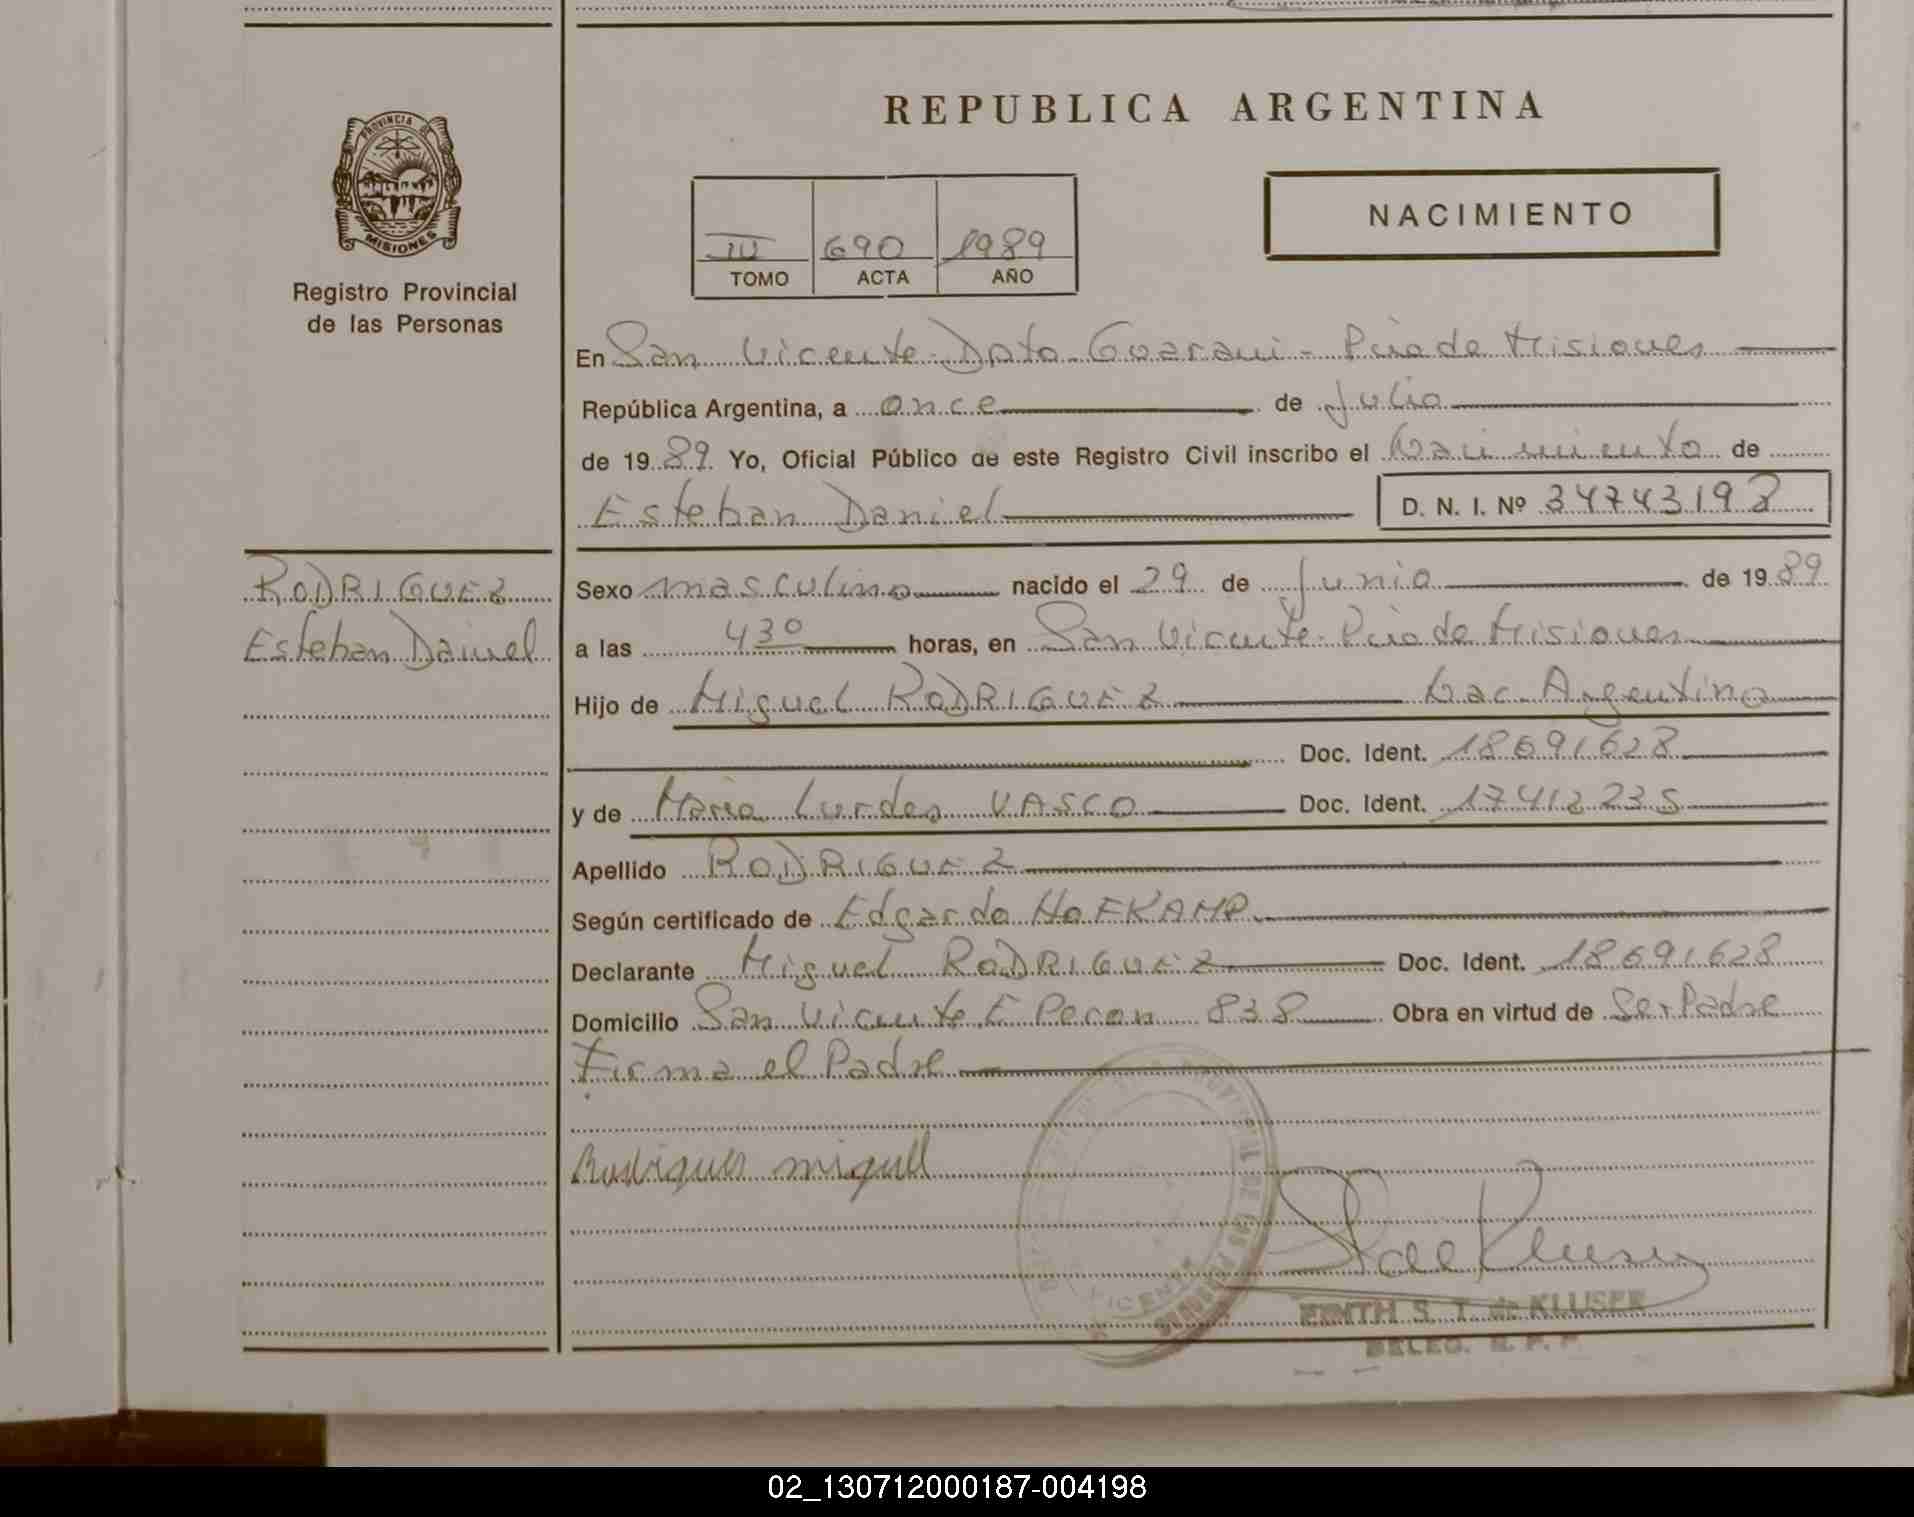 REPUBLICA ARGENTINA
PROVINCIA DE
MISIONES
Registro Provincial
de las Personas
III 690 1989
TOMO ACTA AÑO
NACIMIENTO
En San Vicente - Dpto Guarani - Pcia de Misiones
República Argentina, a once de Julio
de 1989 Yo, Oficial Público de este Registro Civil inscribo el Nacimiento de
Esteban Daniel D. N. I. Nº 34743198
RODRIGUEZ
Esteban Daniel
Sexo masculino nacido el 29 de Junio de 1989
a las 430 horas, en San Vicente - Pcia de Misiones
Hijo de Miguel RODRIGUEZ Nac. Argentino
Doc. Ident. 18691628
y de Maria Lurdes VASCO Doc. Ident. 17412235
Apellido RODRIGUEZ
Según certificado de Edgardo HOFKAMP
Declarante Miguel RODRIGUEZ Doc. Ident. 18691628
Domicilio San Vicente E Peron 838 Obra en virtud de Ser Padre
Firma el Padre
Rodrigues miguel
S. T. de KLUSER
DELEG. R. P. P.
02_130712000187-004198